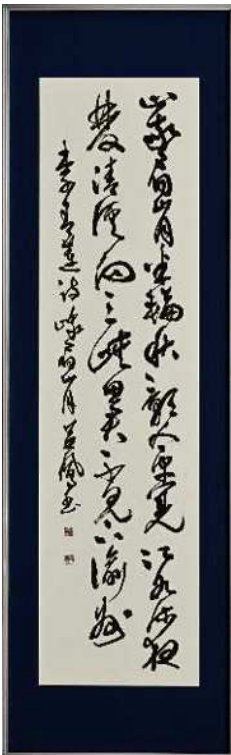 峩眉山月半輪秋影入平羌江水流夜
發清溪向三峡思君不見下渝州
李青蓮詩峨眉山月